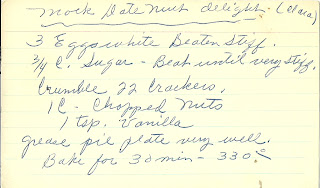 Mock Date Nut delight - (Clara)
3 Eggs white Beaten Stiff.
3/4 C. Sugar - Beat until very stiff.
Crumble 22 Crackers.
1 C - Chopped Nuts
1 tsp. Vanilla
grease pie plate very well.
Bake for 30 min - 330°